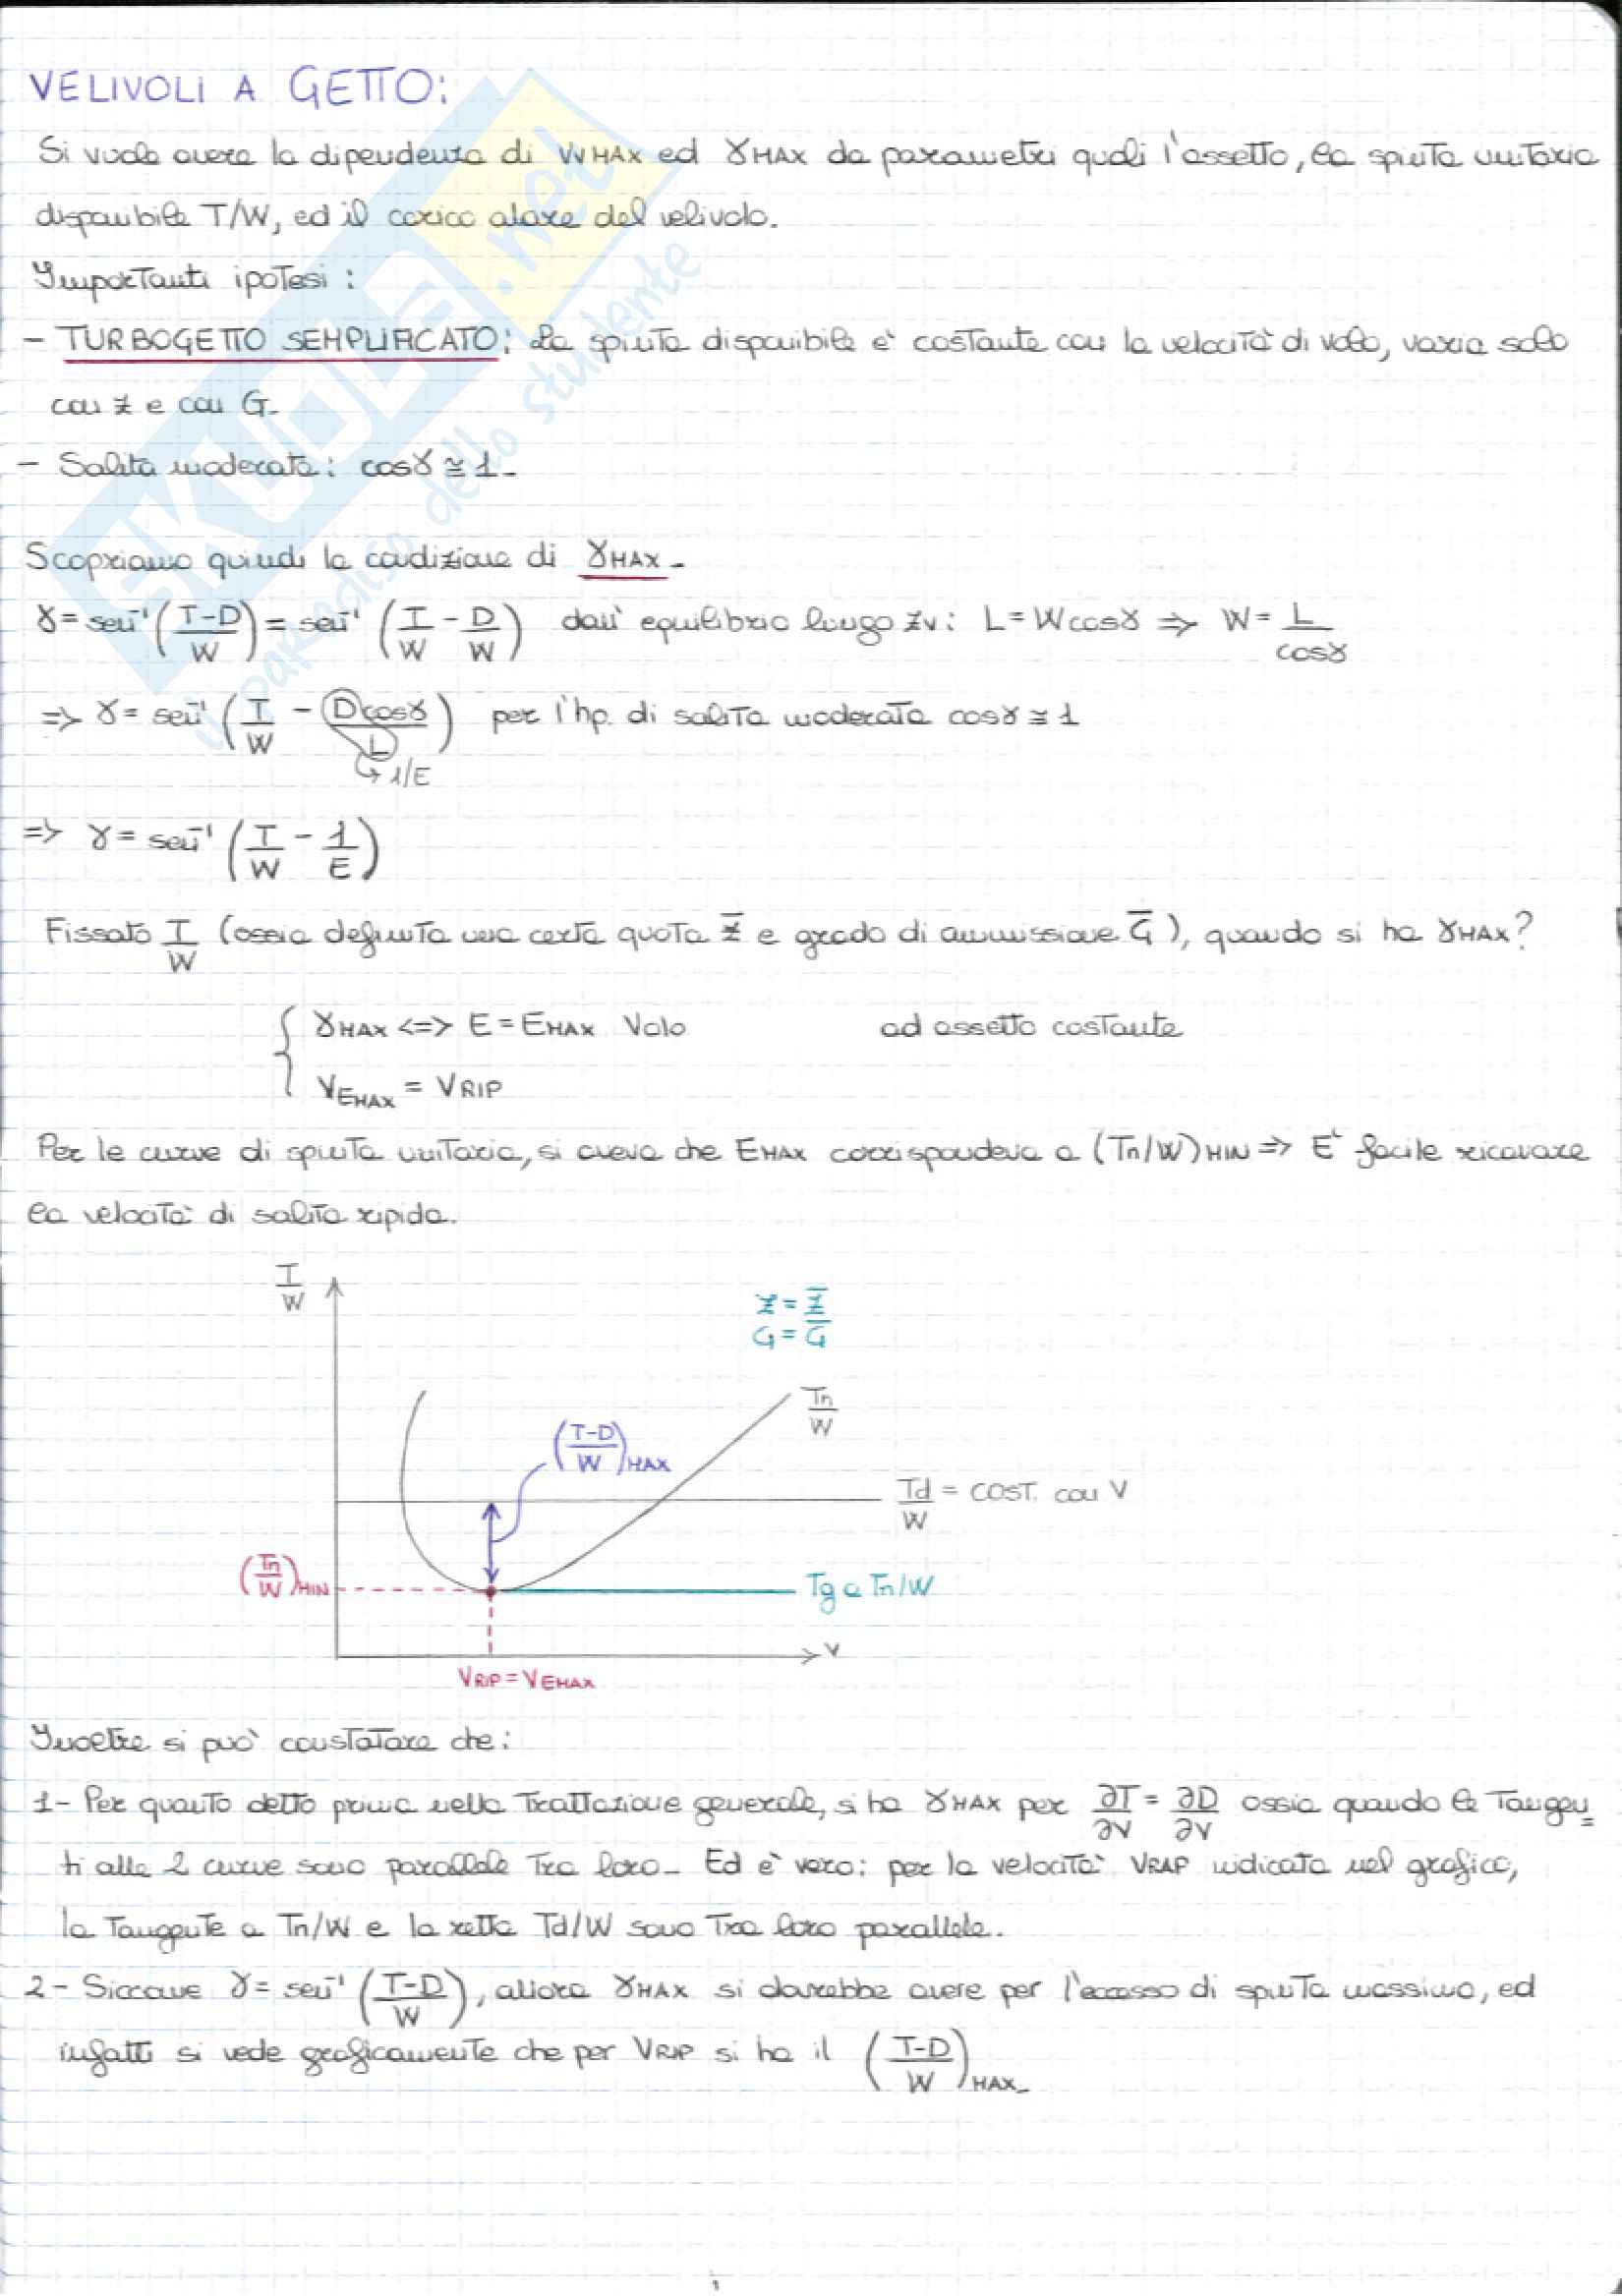 VELIVOLI A GETTO:
Si vuole avere la dipendenza di VVMAX ed γMAX da parametri quali l'assetto, la spinta unitaria
disponibile T/W, ed il carico alare del velivolo.
Importanti ipotesi:
- TURBOGETTO SEMPLIFICATO: La spinta disponibile e' costante con la velocità di volo, varia solo
con z e con G.
- Salita moderata: cosγ ≅ 1.
Scopriamo quindi la condizione di γMAX.
γ = sen⁻¹ ((T-D)/W) = sen⁻¹ (T/W - D/W) dall' equilibrio lungo zv: L = Wcosγ => W = L/cosγ
=> γ = sen⁻¹ (T/W - Dcosγ/L) per l'hp. di salita moderata cosγ ≅ 1
↳ 1/E
=> γ = sen⁻¹ (T/W - 1/E)
Fissato T/W (ossia definita una certa quota z̄ e grado di ammissione Ḡ), quando si ha γMAX?
{ γMAX <=> E = EMAX Volo ad assetto costante
VEMAX = VRIP
Per le curve di spinta unitaria, si aveva che EMAX corrispondeva a (Tn/W)MIN => E' facile ricavare
la velocità di salita ripida.
T/W
z = z̄
G = Ḡ
Tn/W
((T-D)/W)MAX
Td/W = COST. con V
(Tn/W)MIN
Tg a Tn/W
V
VRIP = VEMAX
Inoltre si può constatare che:
1- Per quanto detto prima nella trattazione generale, si ha γMAX per ∂T/∂V = ∂D/∂V ossia quando le tangen
ti alle 2 curve sono parallele tra loro. Ed è vero: per la velocità VRAP indicata nel grafico,
la tangente a Tn/W e la retta Td/W sono tra loro parallele.
2- Siccome γ = sen⁻¹ ((T-D)/W), allora γMAX si dovrebbe avere per l'eccesso di spinta massimo, ed
infatti si vede graficamente che per VRIP si ha il ((T-D)/W)MAX.
SKUOLA.net
il paradiso dello studente